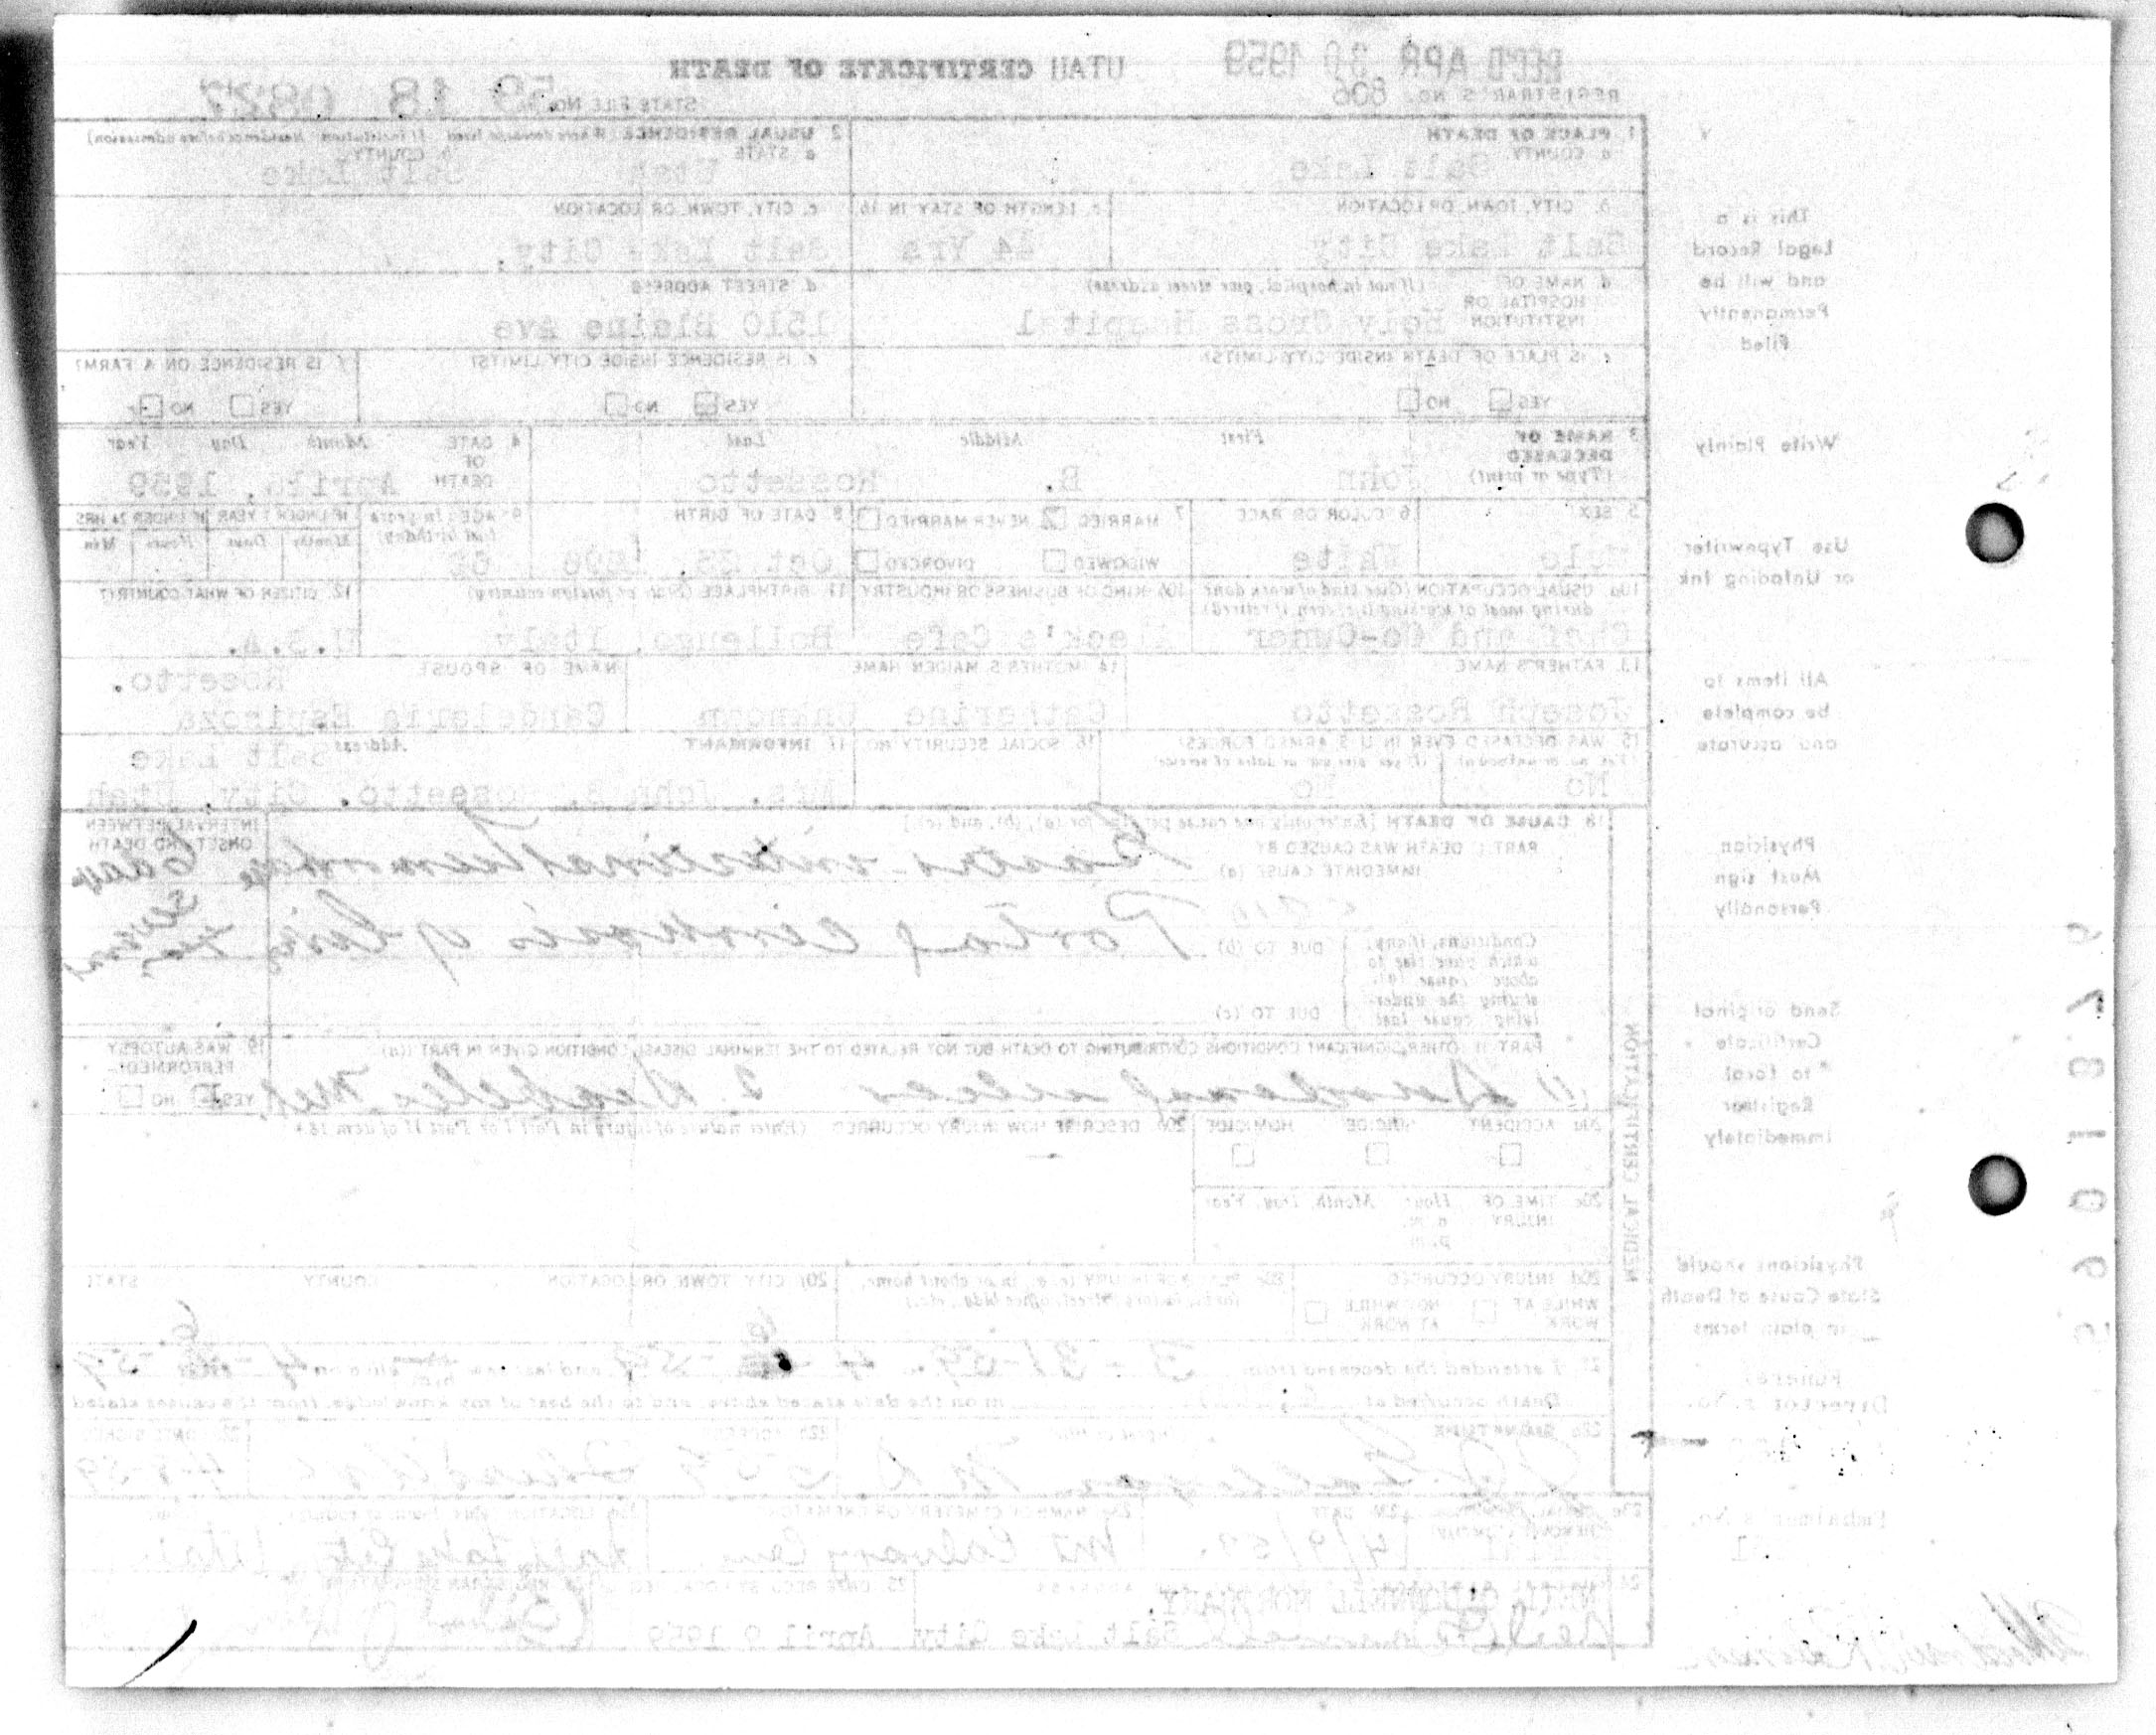 REC'D APR 30 1959
UTAH CERTIFICATE OF DEATH
REGISTRAR'S NO. 606
STATE FILE NO. 59 18 0827
1. PLACE OF DEATH
a. COUNTY
Salt Lake
2. USUAL RESIDENCE (Where deceased lived. If institution: Residence before admission)
a. STATE
Utah
b. COUNTY
Salt Lake
b. CITY, TOWN, OR LOCATION
Salt Lake City
c. LENGTH OF STAY IN 1b
44 Yrs
c. CITY, TOWN, OR LOCATION
Salt Lake City,
d. NAME OF HOSPITAL OR INSTITUTION (If not in hospital, give street address)
Holy Cross Hospital
d. STREET ADDRESS
1510 Blaine Ave
e. IS PLACE OF DEATH INSIDE CITY LIMITS?
YES NO
e. IS RESIDENCE INSIDE CITY LIMITS?
YES NO
f. IS RESIDENCE ON A FARM?
YES NO
3. NAME OF DECEASED (Type or print)
First Middle Last
John B. Rossetto
4. DATE OF DEATH
Month Day Year
April 6, 1959
5. SEX
Male
6. COLOR OR RACE
White
7. MARRIED NEVER MARRIED
WIDOWED DIVORCED
8. DATE OF BIRTH
Oct 23, 1896
9. AGE (In years last birthday)
IF UNDER 1 YEAR IF UNDER 24 HRS
Months Days Hours Min
10a. USUAL OCCUPATION (Give kind of work done during most of working life, even if retired)
Chef and Co-Owner
10b. KIND OF BUSINESS OR INDUSTRY
Cafe
11. BIRTHPLACE (State or foreign country)
Italy
12. CITIZEN OF WHAT COUNTRY?
U.S.A.
13. FATHER'S NAME
Joseph Rossetto
14. MOTHER'S MAIDEN NAME
Catherine Unknown
NAME OF SPOUSE
Candelaria Espinoza
15. WAS DECEASED EVER IN U. S. ARMED FORCES?
(Yes, no, or unknown) (If yes, give war or dates of service)
No No
16. SOCIAL SECURITY NO.
17. INFORMANT Address
Salt Lake
Mrs. John B. Rossetto. City, Utah
18. CAUSE OF DEATH [Enter only one cause per line for (a), (b), and (c)]
INTERVAL BETWEEN ONSET AND DEATH
PART I. DEATH WAS CAUSED BY
IMMEDIATE CAUSE (a)
Gastro-intestinal hemorrhage 6 days
Conditions, if any, which gave rise to above cause (a), stating the underlying cause last
DUE TO (b)
Portal cirrhosis of liver
DUE TO (c)
PART II. OTHER SIGNIFICANT CONDITIONS CONTRIBUTING TO DEATH BUT NOT RELATED TO THE TERMINAL DISEASE CONDITION GIVEN IN PART I (a)
(1) Duodenal ulcer 2. Diabetes Mel.
19. WAS AUTOPSY PERFORMED?
YES NO
20a. ACCIDENT SUICIDE HOMICIDE
20b. DESCRIBE HOW INJURY OCCURRED (Enter nature of injury in Part I or Part II of item 18.)
20c. TIME OF INJURY Hour Month, Day, Year
a.m.
p.m.
20d. INJURY OCCURRED
WHILE AT WORK NOT WHILE AT WORK
20e. PLACE OF INJURY (e.g., in or about home, farm, factory, street, office bldg., etc.)
20f. CITY, TOWN, OR LOCATION COUNTY STATE
21. I attended the deceased from 3-31-59 4-6-59 and last saw him alive on 4-6-59
Death occurred at m on the date stated above, and to the best of my knowledge, from the causes stated
22a. SIGNATURE
M.D.
22b. ADDRESS
22c. DATE SIGNED
4-8-59
23b. DATE
4/9/59
23c. NAME OF CEMETERY OR CREMATORY
Mt Calvary Cem
23d. LOCATION
Salt Lake City Utah
NEIL O'DONNELL MORTUARY
ADDRESS
Salt Lake City
25. DATE RECD. BY LOCAL REG.
April 9 1959
MEDICAL CERTIFICATION
This is a
Legal Record
and will be
Permanently
Filed
Write Plainly
Use Typewriter
or Unfading Ink
All items to
be complete
and accurate
Physician
Must sign
Personally
Send original
Certificate
to Local
Registrar
Immediately
Physicians should
State Cause of Death
in plain terms
Funeral
Director's No.
Embalmer's No.